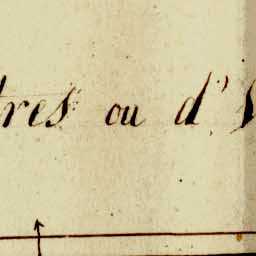 tres ou d'